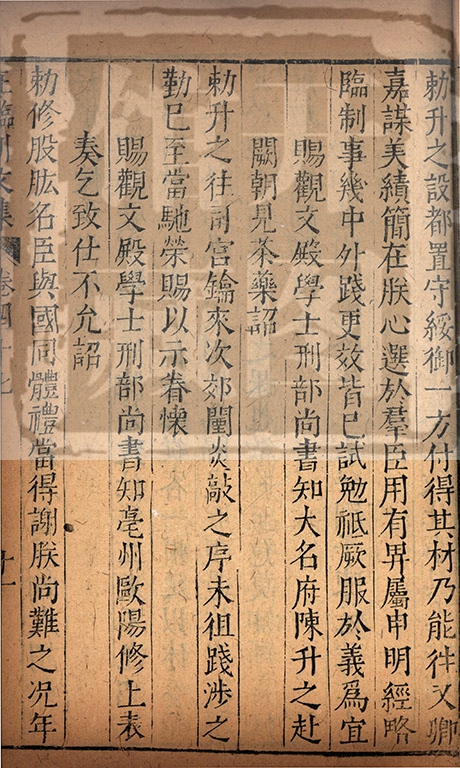 勅升之設都置守綏御一方付得其材乃能伴乂卿
嘉謀美績簡在朕心選於羣臣用有畀屬申明經略
臨制事幾中外踐更效皆已試勉祗厥服於義爲宜
賜觀文殿學士刑部尚書知大名府陳升之赴
闕朝見茶藥詔
勅升之往司宮鑰來次郊闉炎敲之序未徂踐涉之
勤已至當馳榮賜以示眷懷
賜觀文殿學士刑部尚書知亳州歐陽修上表
奏乞致仕不允詔
勅修股肱名臣與國同體禮當得謝朕尚難之况年
王臨川文集 卷四十七 十一